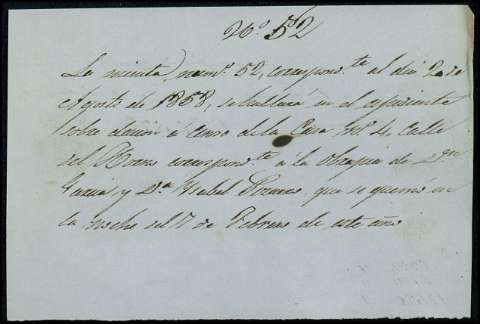 Nº 52
La minuta num.º 52, correspond.te al dia 2 de
Agosto de 1858, se hallará en el espediente
sobre dacion a censo de la Casa nº 4, calle
del Horno correspond.te a la Obrapia de D.n
Garcia, y D.ª Isabel que se quemó en
la noche del 7 de Febrero de este año